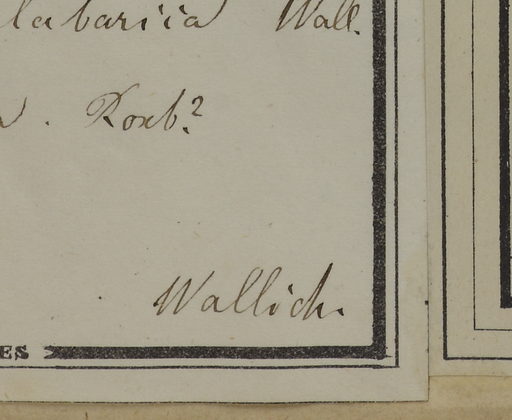 labariia Wall.
. Roxb.?
Wallich.
ES